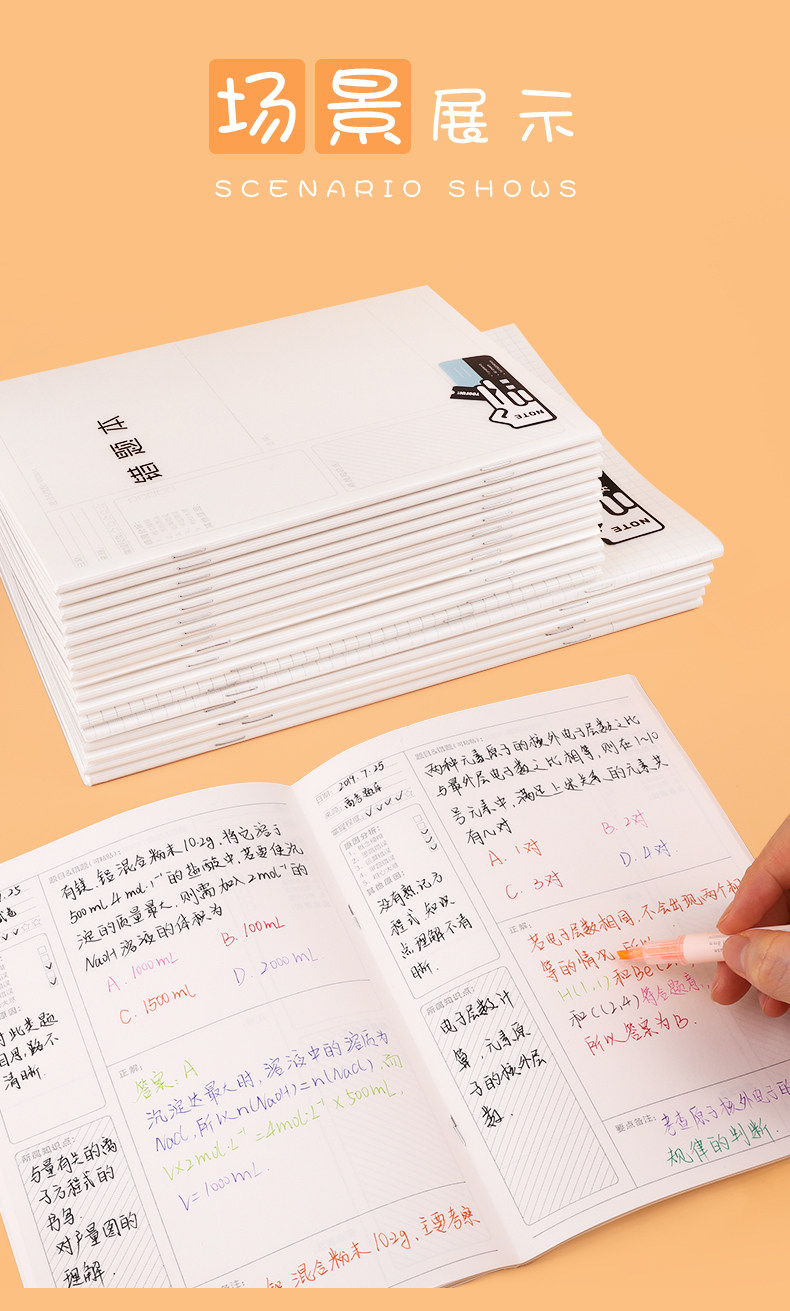 场景展示
SCENARIO SHOWS
错题本
NOTE
NOTE
有镁、铝混合粉末10.2g,将它溶于
500mL 4mol·l⁻¹的盐酸中,若要使沉
淀的质量最大,则需加入2mol⁻¹的
NaOH溶液的体积为
A. 1000mL
B. 100mL
C. 1500mL
D. 2000mL
正解:
答案:A
沉淀达最大时,溶液中的溶质为
NaCl,所以n(NaOH)=n(NaCl),而
V×2mol·L⁻¹=4mol·L⁻¹×500mL,
V=1000mL.
混合粉末10.2g,主要考察
7.25
对此类题
目思路不
清晰.
所属知识点:
与量有关的离
子方程式的
书写.
对产量图的
理解.
2019.7.25
高考题库
原因分析:
其他原因:
没有熟记方
程式,知识
点理解不清
晰.
所属知识点:
电子层数计
算,元素原
子的核外层
数.
两种元素原子的核外电子层数之比
与最外层电子数之比相等,则在1~10
号元素中,满足上述关系的元素共
有几对
A. 1对
B. 2对
C. 3对
D. 4对
正解:
若电子层数相同,不会出现两个相
等的情况,所以
H(1,1)和Be(2,
和C(2,4)符合题意,
所以答案为B.
要点备注:
考查原子核外电子的
规律的判断.